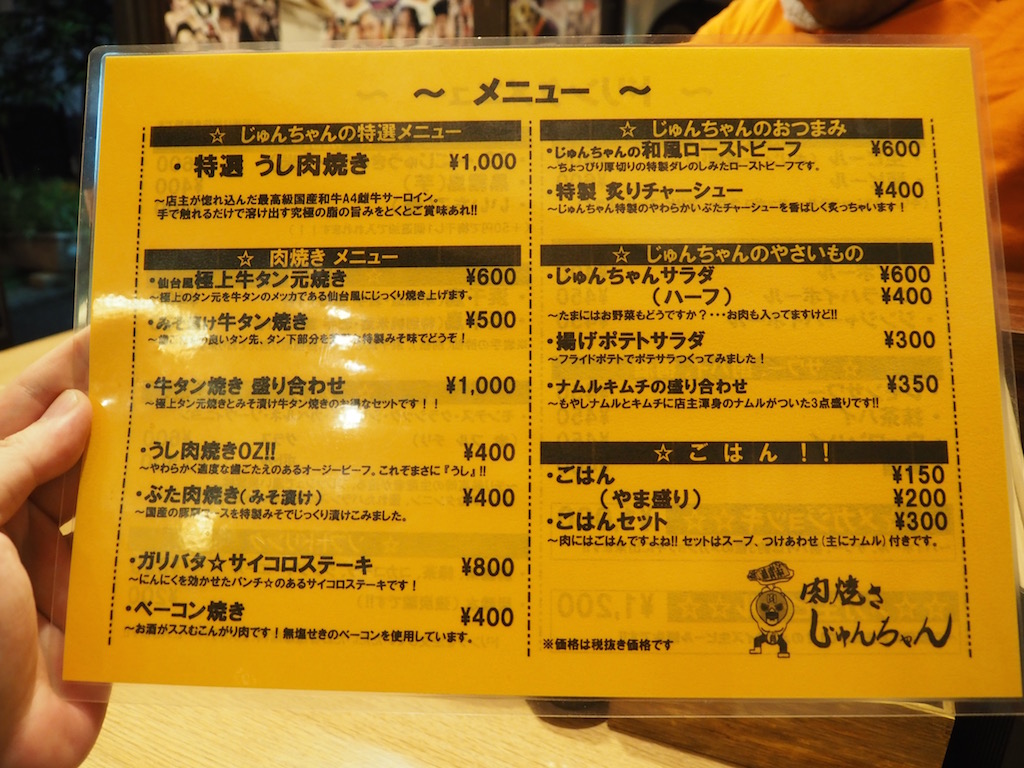 ～ メニュー ～
☆ じゅんちゃんの特選メニュー
・特選 うし肉焼き ¥1,000
～店主が惚れ込んだ最高級国産和牛A4雌牛サーロイン。
手で触れるだけで溶け出す究極の脂の旨みをとくとご賞味あれ!!
☆ 肉焼き メニュー
・仙台風極上牛タン元焼き ¥600
～極上のタン元を牛タンのメッカである仙台風にじっくり焼き上げます。
・みそ漬け牛タン焼き ¥500
良いタン先、タン下部分を 特製みそ味でどうぞ！
・牛タン焼き 盛り合わせ ¥1,000
～極上タン元焼きとみそ漬け牛タン焼きのお得なセットです！！
・うし肉焼きOZ!! ¥400
～やわらかく適度な歯ごたえのあるオージービーフ。これぞまさに『うし』!!
・ぶた肉焼き（みそ漬け） ¥400
～国産の豚肩ロースを特製みそでじっくり漬けこみました。
・ガリバタ☆サイコロステーキ ¥800
～にんにくを効かせたパンチ☆のあるサイコロステーキです！
・ベーコン焼き ¥400
～お酒がススむこんがり肉です！無塩せきのベーコンを使用しています。
☆ じゅんちゃんのおつまみ
・じゅんちゃんの和風ローストビーフ ¥600
～ちょっぴり厚切りの特製ダレのしみたローストビーフです。
・特製 炙りチャーシュー ¥400
～じゅんちゃん特製のやわらかいぶたチャーシューを香ばしく炙っちゃいます！
☆ じゅんちゃんのやさいもの
・じゅんちゃんサラダ ¥600
（ハーフ） ¥400
～たまにはお野菜もどうですか？・・・お肉も入ってますけど!!
・揚げポテトサラダ ¥300
～フライドポテトでポテサラつくってみました！
・ナムルキムチの盛り合わせ ¥350
～もやしナムルとキムチに店主渾身のナムルがついた3点盛りです!!
☆ ごはん！！
・ごはん ¥150
（やま盛り） ¥200
・ごはんセット ¥300
～肉にはごはんですよね!! セットはスープ、つけあわせ（主にナムル）付きです。
肉焼き
じゅんちゃん
※価格は税抜き価格です